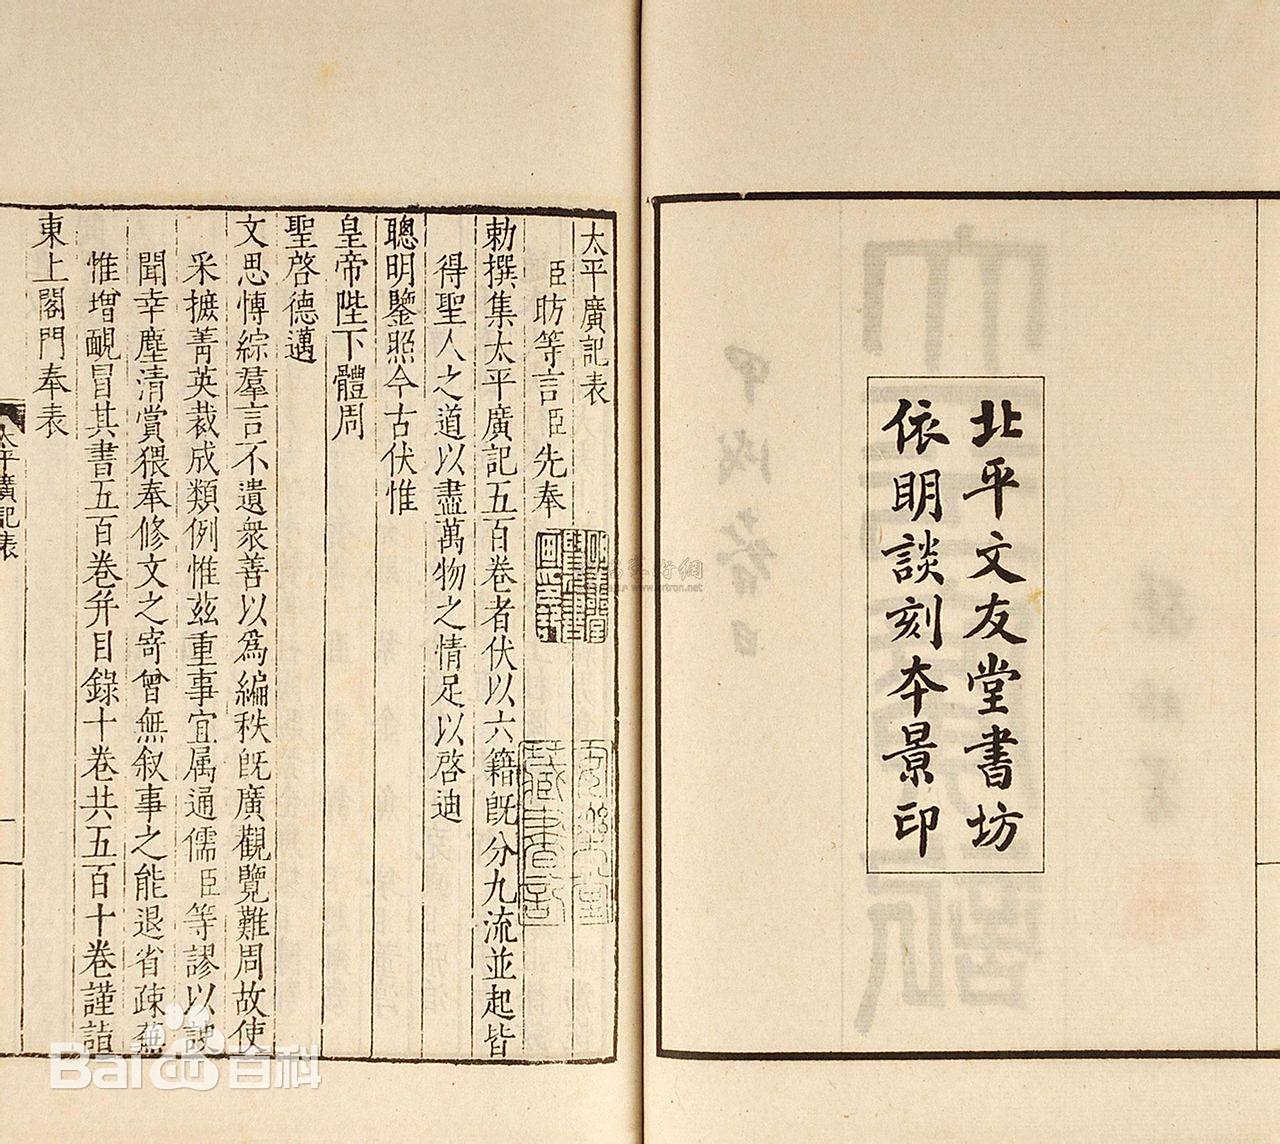 北平文友堂書坊
依明談刻本景印
太平廣記表
臣昉等言臣先奉
勅撰集太平廣記五百卷者伏以六籍旣分九流並起皆
得聖人之道以盡萬物之情足以啓迪
聰明鑒照今古伏惟
皇帝陛下體周
聖啓德邁
文思博綜羣言不遺衆善以爲編秩旣廣觀覽難周故使
采摭菁英裁成類例惟茲重事宜属通儒臣等謬以諛
聞幸塵清賞猥奉修文之寄曾無叙事之能退省疎蕪
惟增靦冒其書五百卷幷目錄十卷共五百十卷謹詣
東上閤門奉表
太平廣記表
Baidu百科